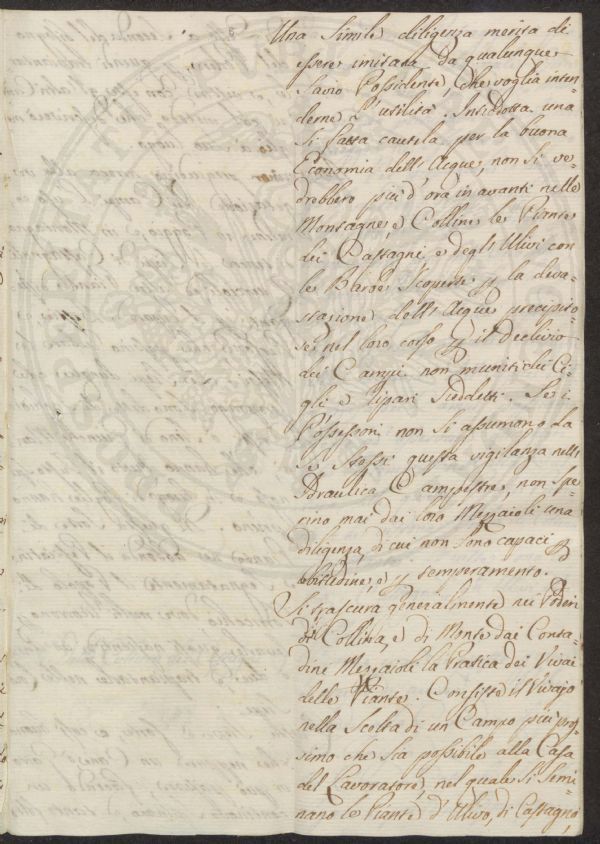 Una Simile diligenza merita di
essere imitata da qualunque
Savio Possidente che voglia inten=
derne l'utilità. Introdotta una
Si fatta cautela per la buona
Economia dell'Acque, non Si ve=
drebbero più d'ora in avanti nelle
Montagne, e Colline le Piante
dei Castagni e degl'Ulivi con
le Barbe Scoperte p la deva=
stazione dell'Acque precipito=
se nel loro corso p il Declivio
dei Campi non muniti dei Ci=
gli e ripari Sueddetti. Se i
Possessori non Si assumono da
Se Stessi questa vigilanza nell'
Idraulica Campestre, non Spe=
rino mai dai loro Mezzaioli una
diligenza, di cui non Sono capaci p
abitudine, e p temperamento.
Si trascura generalmente nei Poderi
di Collina, e di Monte dai Conta=
dini Mezzaioli la Pratica dei Vivai
delle Piante. Consiste il Vivajo
nella Scelta di un Campo più pros=
simo che Sia possibile alla Casa
del Lavoratore, nel quale Si Semi=
nano le Piante d'Ulivo, di Castagno,